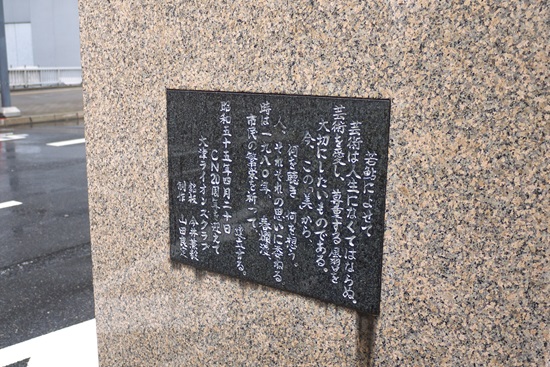 若鮎によせて
芸術は人生になくてはならぬ。
芸術を愛し、尊重する風習を
大切にしたいものである。
今、この美から
何を聴き、何を想う。
人、それぞれの思いに委ねる
時は一九八〇年、春爛漫
市民の繁栄を祈って、
建立する。
昭和五十五年四月二十日
CN20周年を迎えて
大津ライオンズクラブ
制作 山田良定